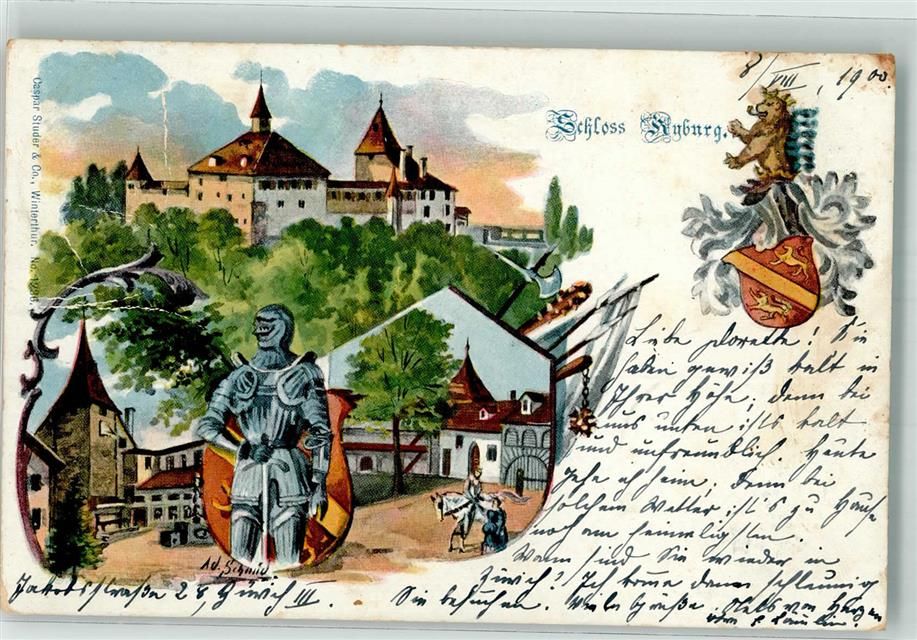 8/VIII, 1900
Schloss Kyburg.
Caspar Studer & Co., Winterthur. No.
Liebe Dorette! Sie
haben gewiß kalt in
Ihrer Höhe; denn bei
uns unten ist's kalt
und unfreundlich. Heute
gehe ich heim; denn bei
solchem Wetter ist's zu Hause
noch am heimeligsten.
Wann sind Sie wieder in
Zürich? Ich komme dann schleunig
Sie besuchen. Viele Grüße. Alles von Herzen
von
Jakobsstraße 28, Zürich III.
Ad. Schmid